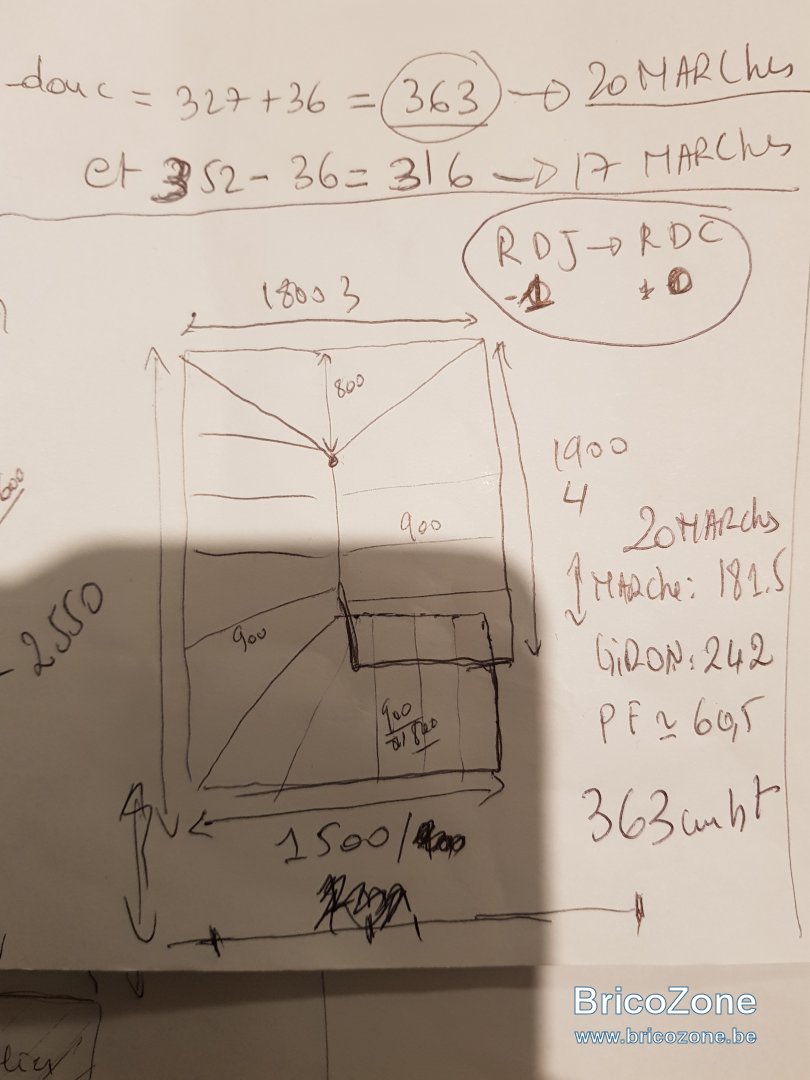 donc = 327+36 = 363 → 20 MARChes
et 352 - 36 = 316 → 17 MARChes
RDJ → RDC
-1 + 0
1800 3
800
1900
4
900
20 MARChes
MARche: 181.5
2550
900
GiRON: 242
900
PF ≃ 60,5
363 cm ht
1500/
BricoZone
www.bricozone.be